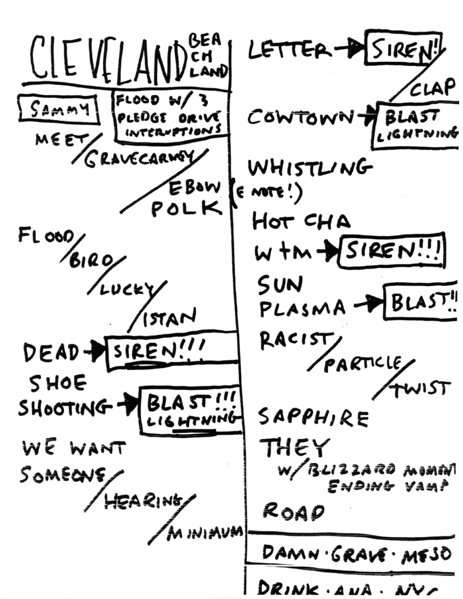 CLEVELAND BEA
CH
LAND
SAMMY
FLOOD W/ 3
PLEDGE DRIVE
INTERUPTIONS
MEET
/GRAVECARNEY
/EBOW (E NOTE!)
POLK
FLOOD
/BIRD
/LUCKY
/ISTAN
DEAD → SIREN!!!
SHOE
SHOOTING → BLAST!!!
LIGHTNING
WE WANT
SOMEONE
/HEARING
/MINIMUM
LETTER → SIREN!
/CLAP
COWTOWN → BLAST
LIGHTNING
WHISTLING
HOT CHA
W+M → SIREN!!!
SUN
PLASMA → BLAST!!
RACIST
/PARTICLE
/TWIST
SAPPHIRE
THEY
W/ BLIZZARD MOMENT
ENDING VAMP
ROAD
DAMN · GRAVE · MESO
DRINK · ANA · NYC